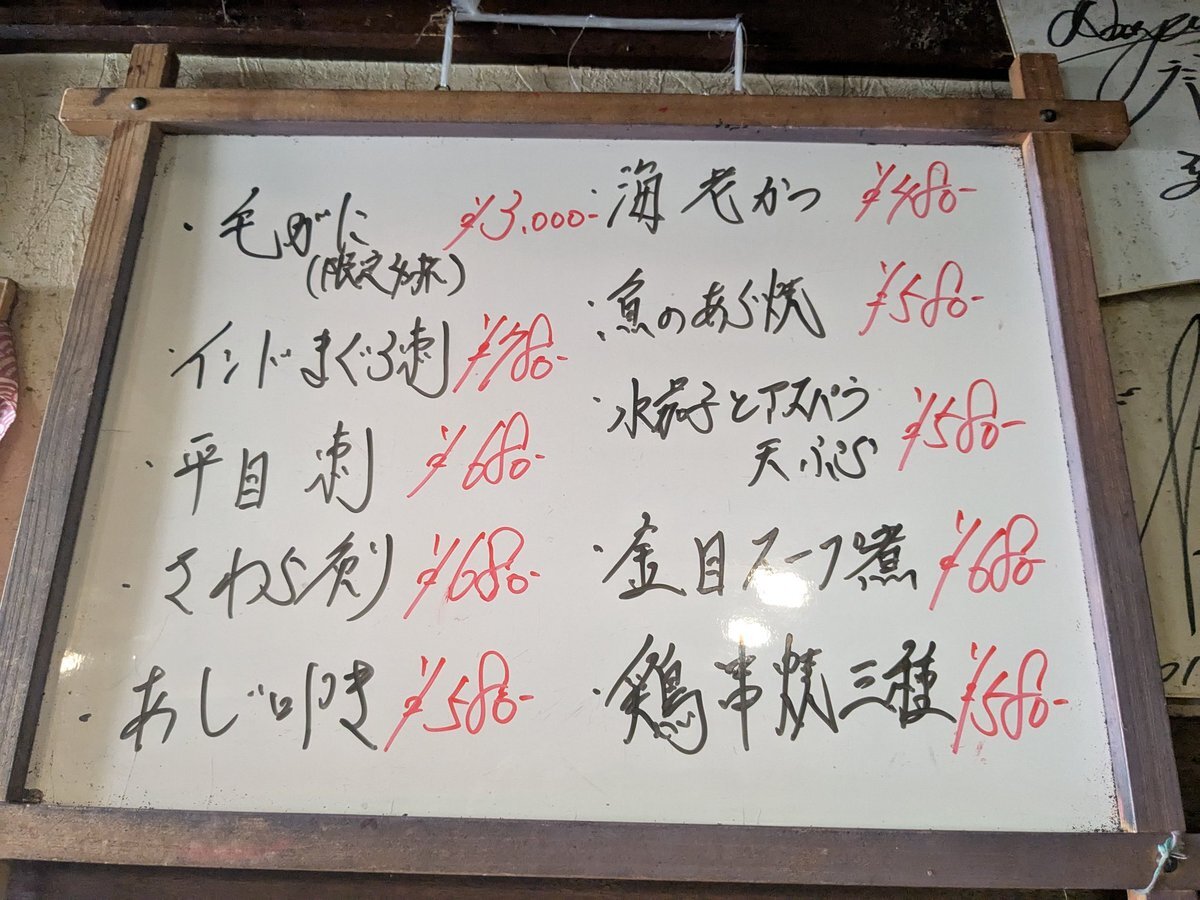 ・毛がに ¥3.000-
(限定多味)
・インドまぐろ刺 ¥780-
・平目刺 ¥680-
・さわら刺 ¥680-
・あじ叩き ¥580-
・海老かつ ¥480-
・魚のあら焼 ¥580-
・水茄子とアスパラ
天ぷら ¥580-
・金目スープ煮 ¥680-
・鶏串焼三種 ¥580-